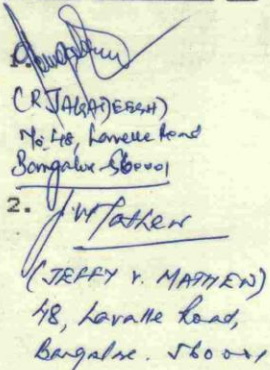 1.
(R JAGADEESH)
No. 48, Lavelle Road
Bangalore-560001
2.
J.V. Mathew
(JEFFY V. MATHEW)
48, Lavalle Road,
Bangalore. 560001